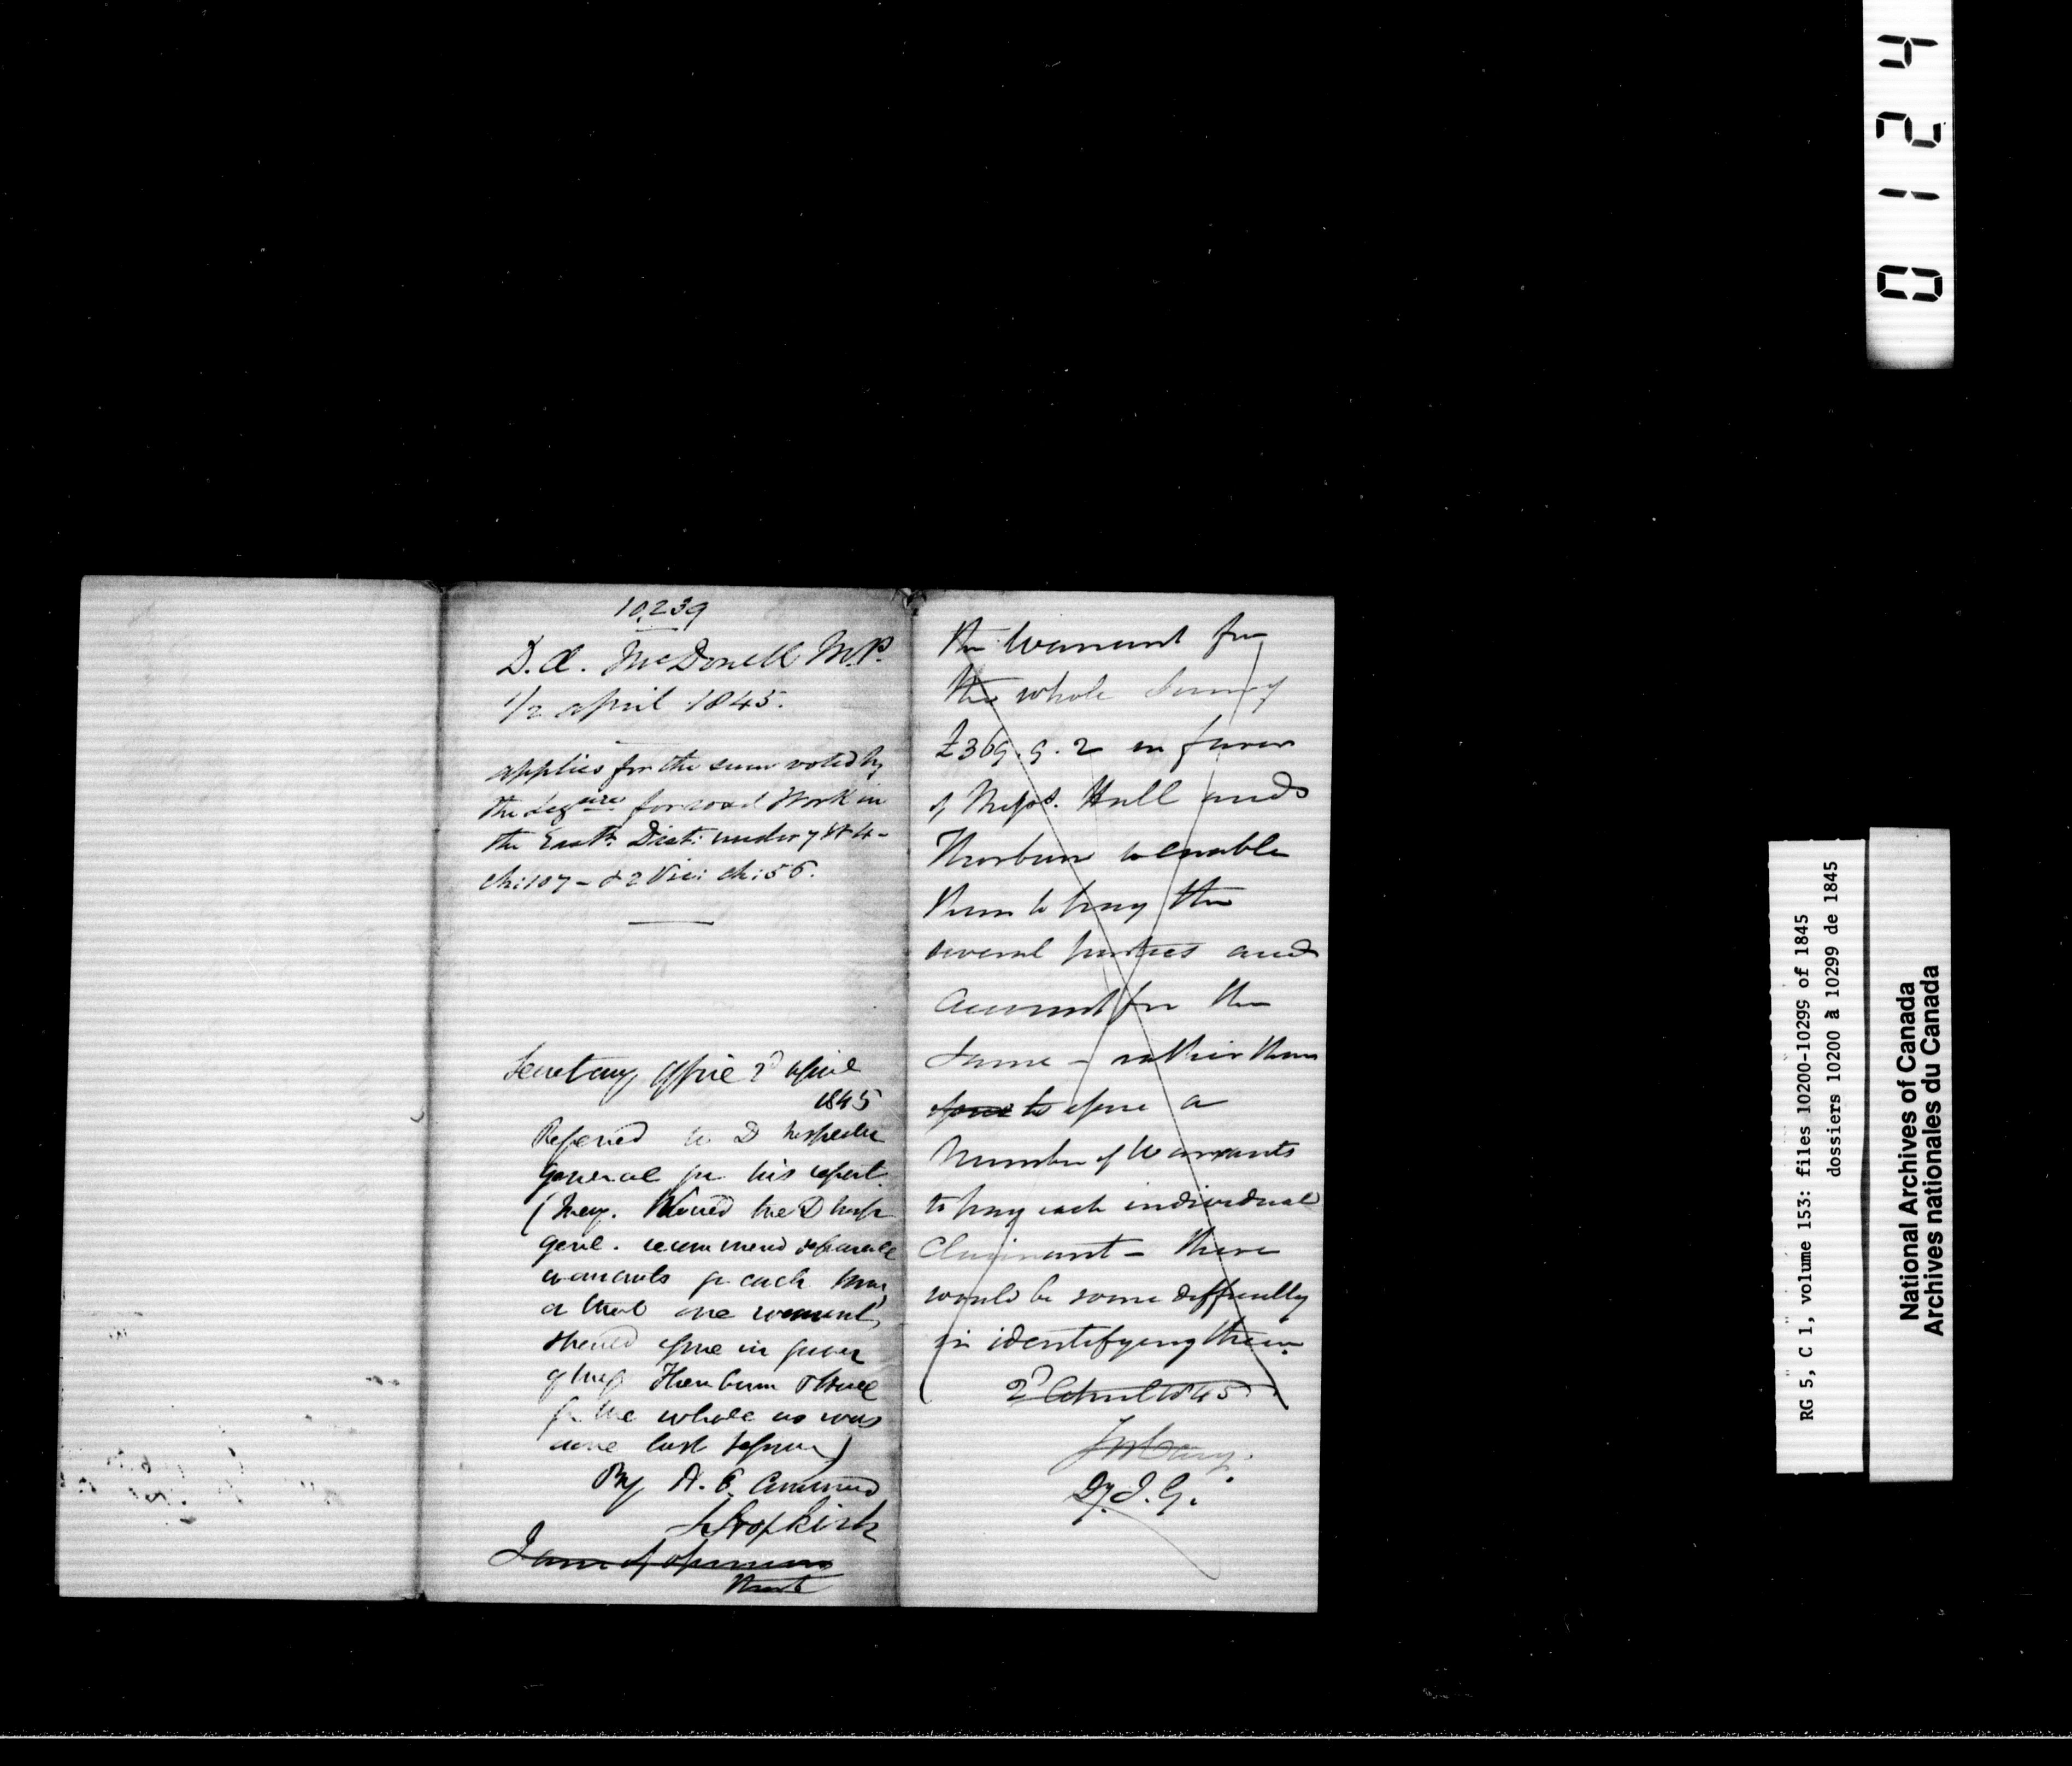 10,239
D. Æ. McDonell M.P.
1/2 april 1845.
applies for the sum voted by
the Legure for road Work in
the Eastn Dist: under 7 W 4 -
ch: 107 - & 2 Vic: ch: 56.
Secretary Office 2d April
1845
Referred to D Inspector
General for his report
(Mem. Would the D Insp
Genl. recommend separate
warrants for each sum,
or that one warrant
should issue in favor
of Messrs Thorburn & Hull
for the whole as was
done last Session)
By H. E. Command
J Hopkirk
I am of opinion
that
the Warrant for
the whole Sum of
£369.9.2 in favor
of Messrs. Hull and
Thorburn to enable
them to pay the
several parties and
Account for the
Same - rather than
to issue a
Number of Warrants
to pay each individual
Claimant - there
would be some difficulty
in identifying them.
2d April 1845.
J W Cary.
Dy. I. G.
0124
RG 5, C 1, volume 153: files 10200-10299 of 1845
dossiers 10200 à 10299 de 1845
National Archives of Canada
Archives nationales du Canada